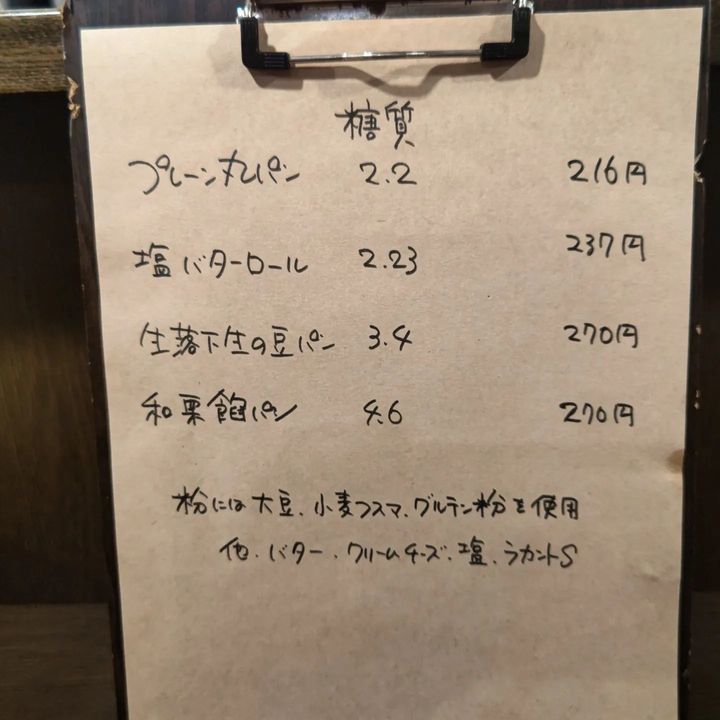 糖質
プレーン丸パン 2.2 216円
塩バターロール 2.23 237円
生落下生の豆パン 3.4 270円
和栗餡パン 4.6 270円
粉には大豆、小麦フスマ、グルテン粉を使用
他、バター、クリームチーズ、塩、ラカントS